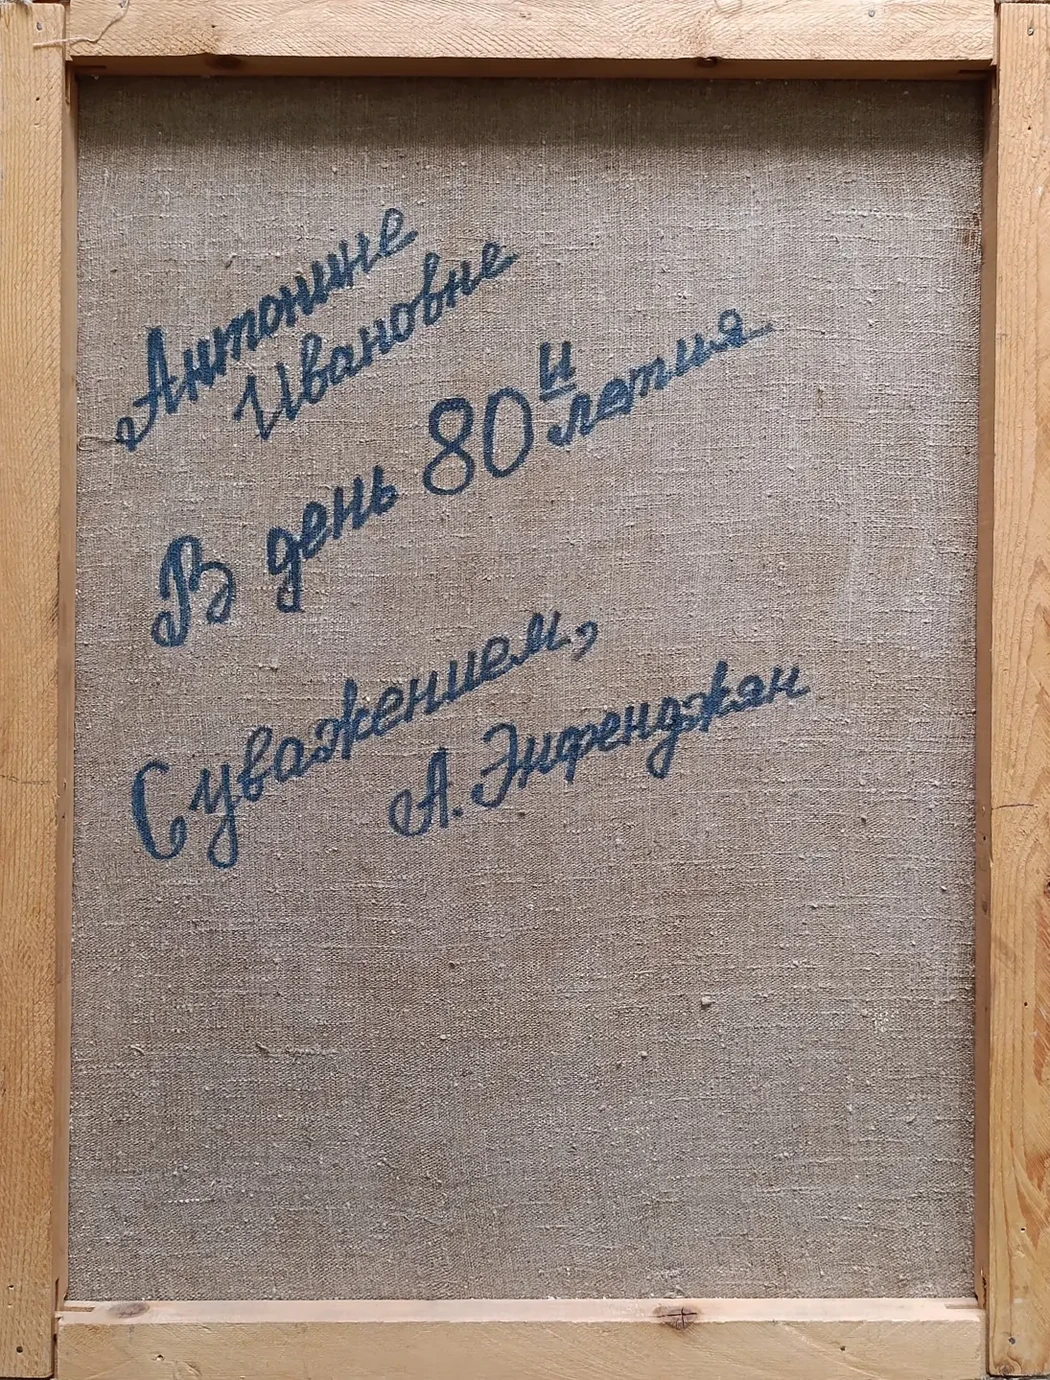 Антонине
Ивановне
В день 80и летия
С уважением,
А. Энфенджян